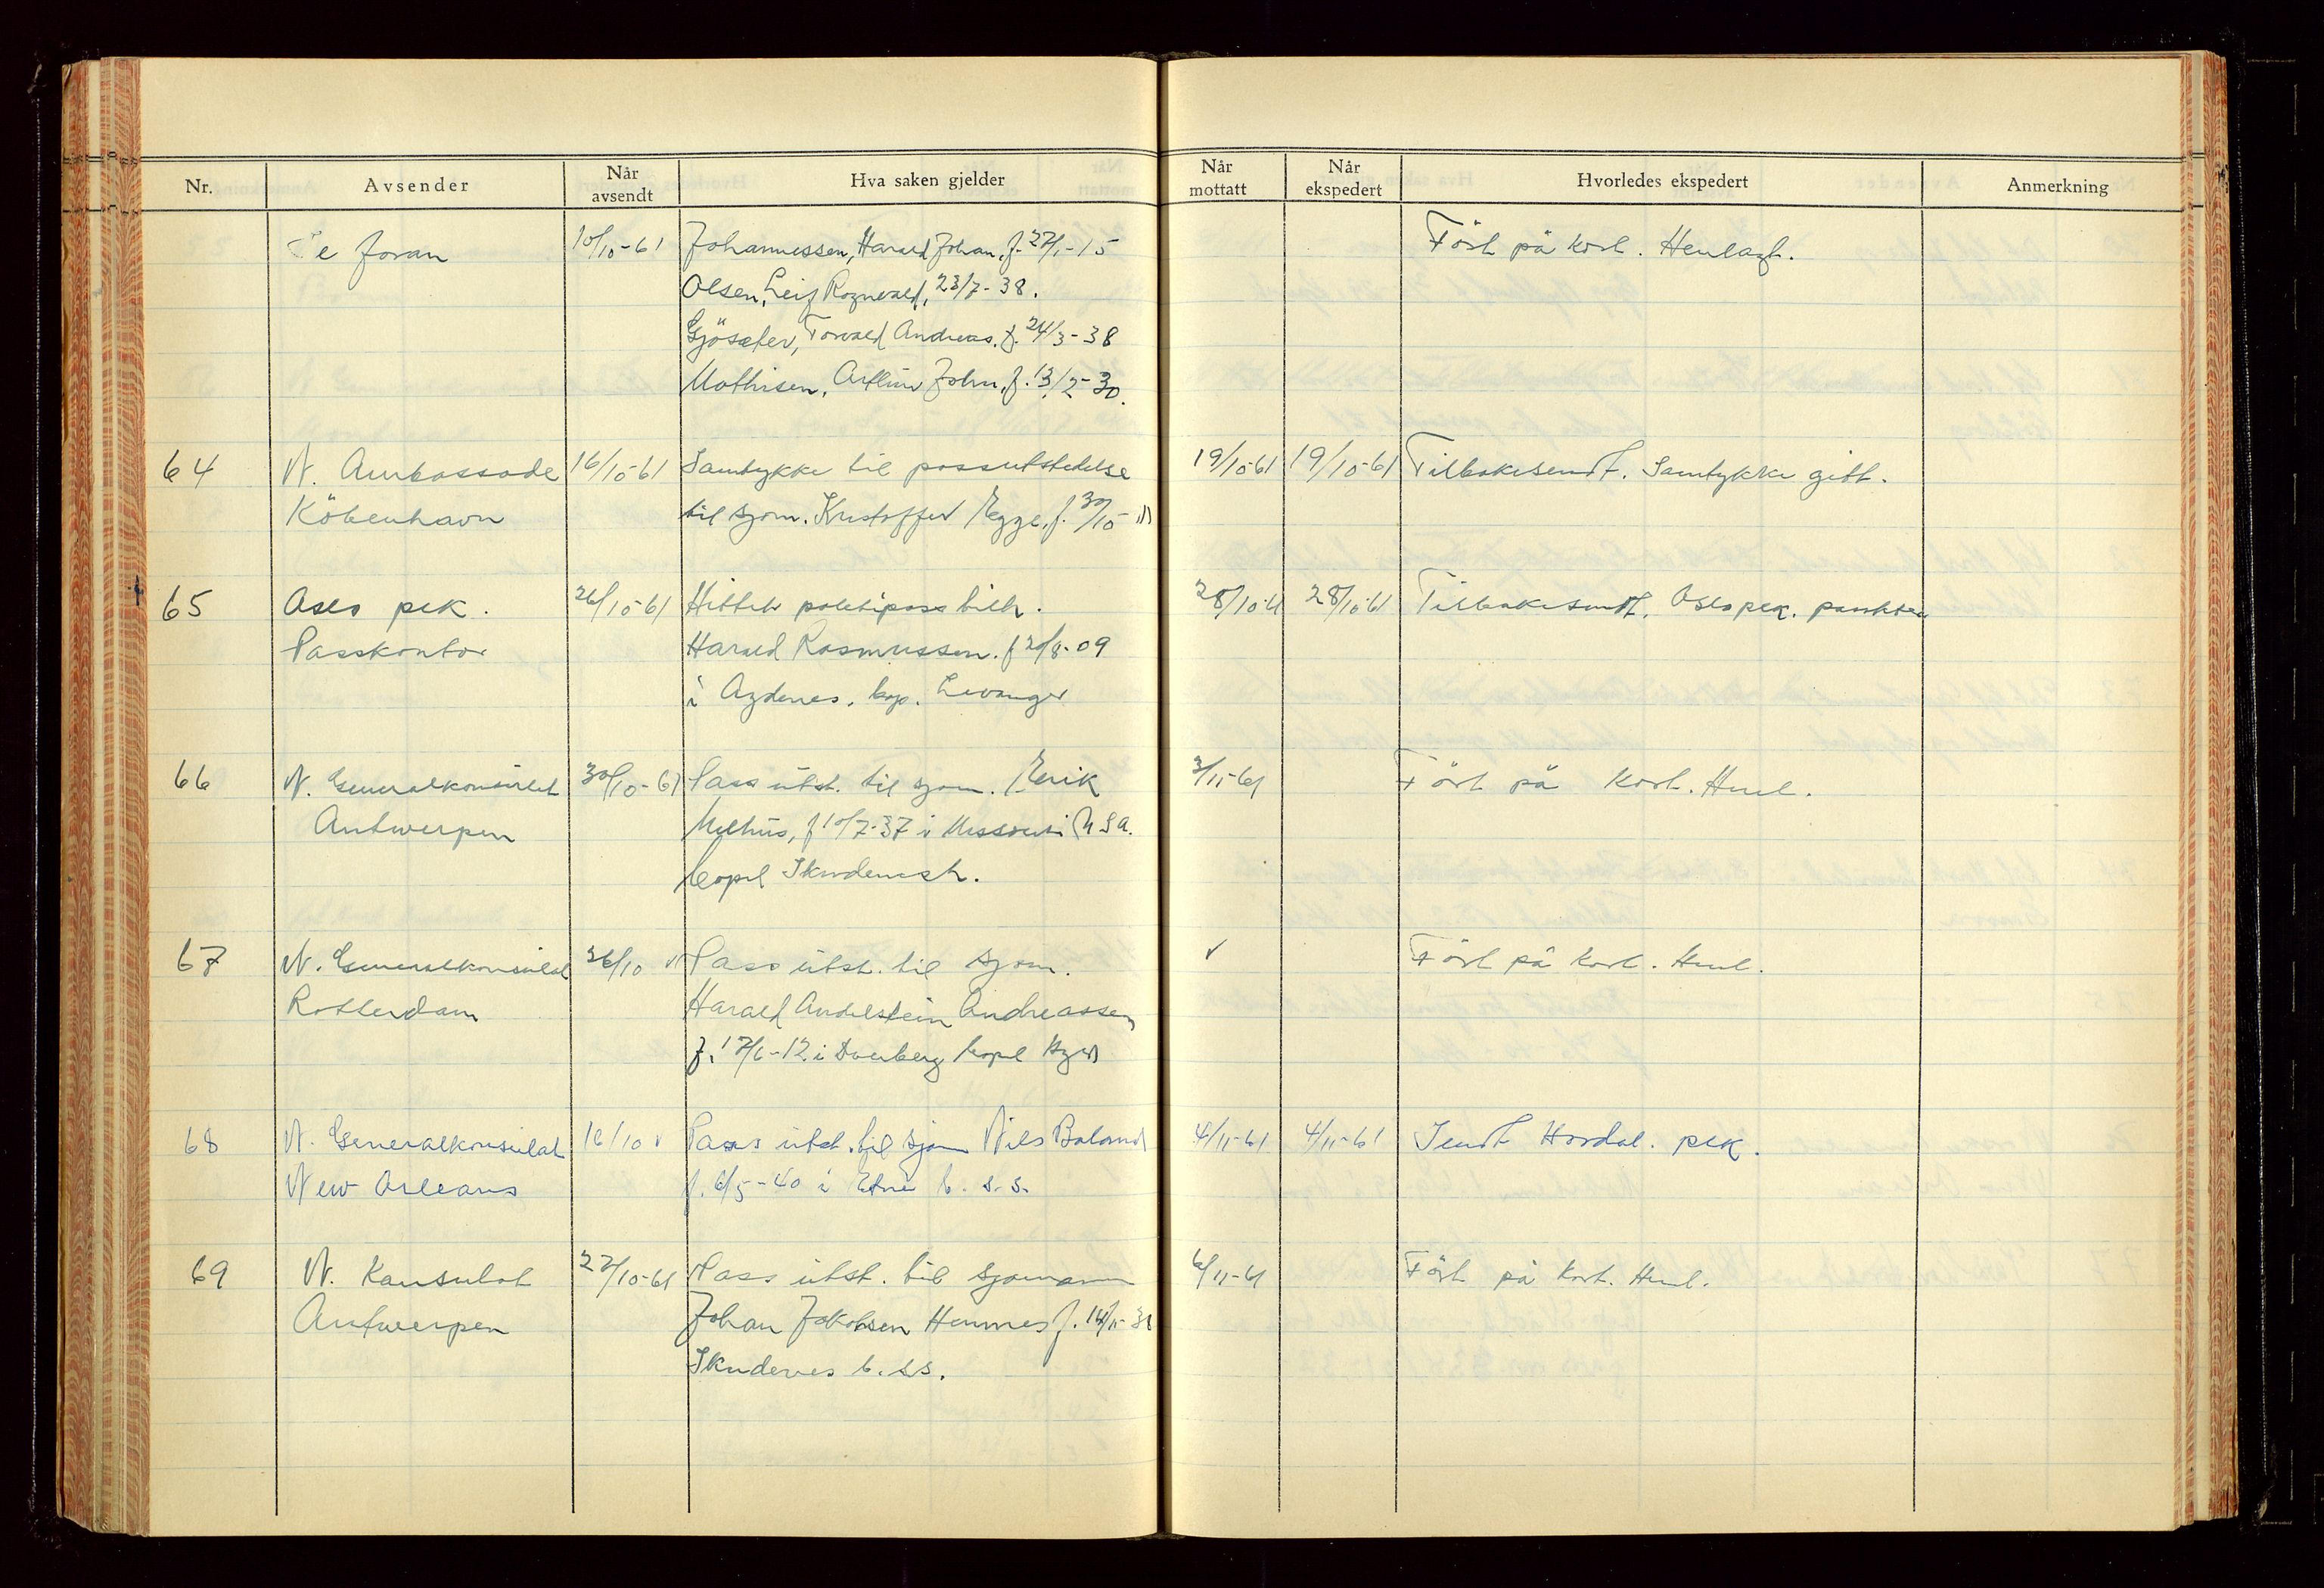 Nr.
Avsender
Når
avsendt
Hva saken gjelder
Når
mottatt
Når
ekspedert
Hvorledes ekspedert
Anmerkning
Se foran 10/10-61 Johannessen, Harald Johan, f. 27/1-15 Först på kort. Henlagt.
Olsen, Leif Rognvald, 23/7-38.
Gjösæter, Torvald Andreas. f. 24/3-38
Mathisen, Arthur John, f. 13/2-30.
64 N. Ambassade 16/10-61 Samtykke til passutstedelse 19/10-61 19/10-61 Tilbakesendt. Samtykke gitt.
Köbenhavn til sjöm. Kristoffer Egge, f. 30/10
65 Oslo pck. 26/10-61 Hittet politipass tilh. 28/10-61 28/10-61 Tilbakesendt. Oslo pck.
Passkontor Harald Rasmussen. f 20/8-09
i Agdenes, bop. Levanger
66 N. Generalkonsulat 30/10-61 Pass utst. til sjöm. Erik 3/11-61 Först på kort. Henl.
Antwerpen Melhus, f 10/7-37 i Missouri USA.
bopel Skudenesh.
67 N. Generalkonsulat 26/10 " Pass utst. til sjöm. " Först på kort. Henl.
Rotterdam Harald Andelstein Andreassen
f. 17/6-12 i Dverberg bopel
68 N. Generalkonsulat 16/10 " Pass utst. til sjöm Nils Baland 4/11-61 4/11-61 Sendt Hordal. pck.
New Orleans f. 6/5-40 i Etne b. s.s.
69 N. Konsulat 27/10-61 Pass utst. til sjömann 6/11-61 Först på kort. Henl.
Antwerpen Johan Jakobsen Hemnes f. 14/11-38
Skudenes b. s.s.